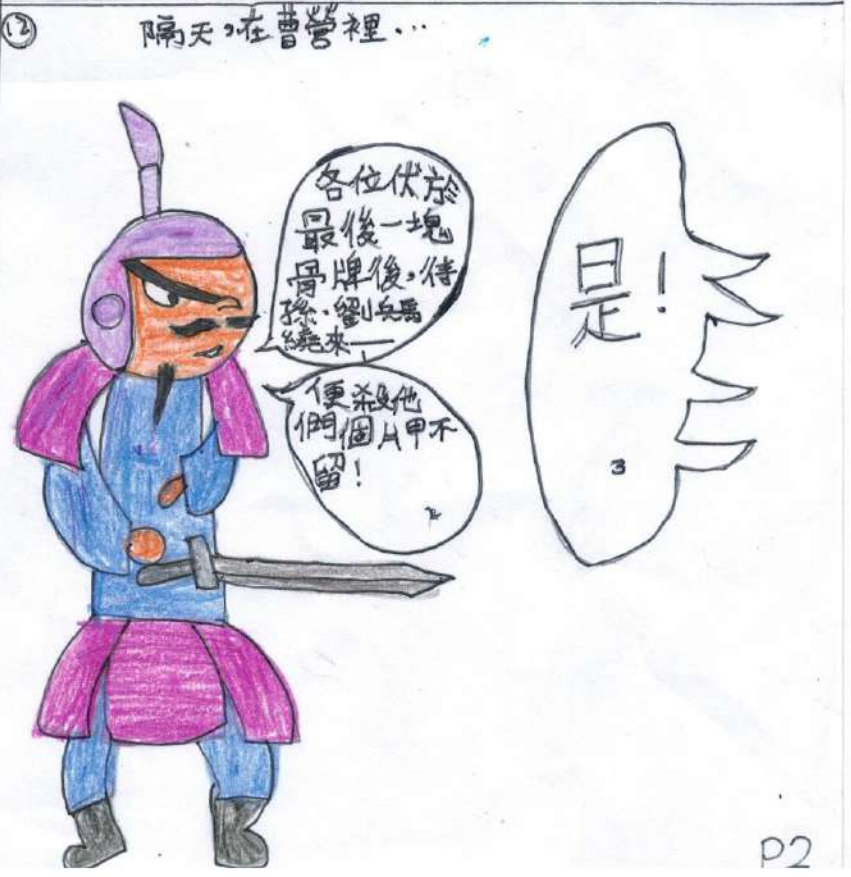 12
隔天，在曹營裡…
各位伏於
最後一塊
骨牌後，待
孫、劉兵馬
繞來——
便殺他
們個片甲不
留！
2
是！
3
P2